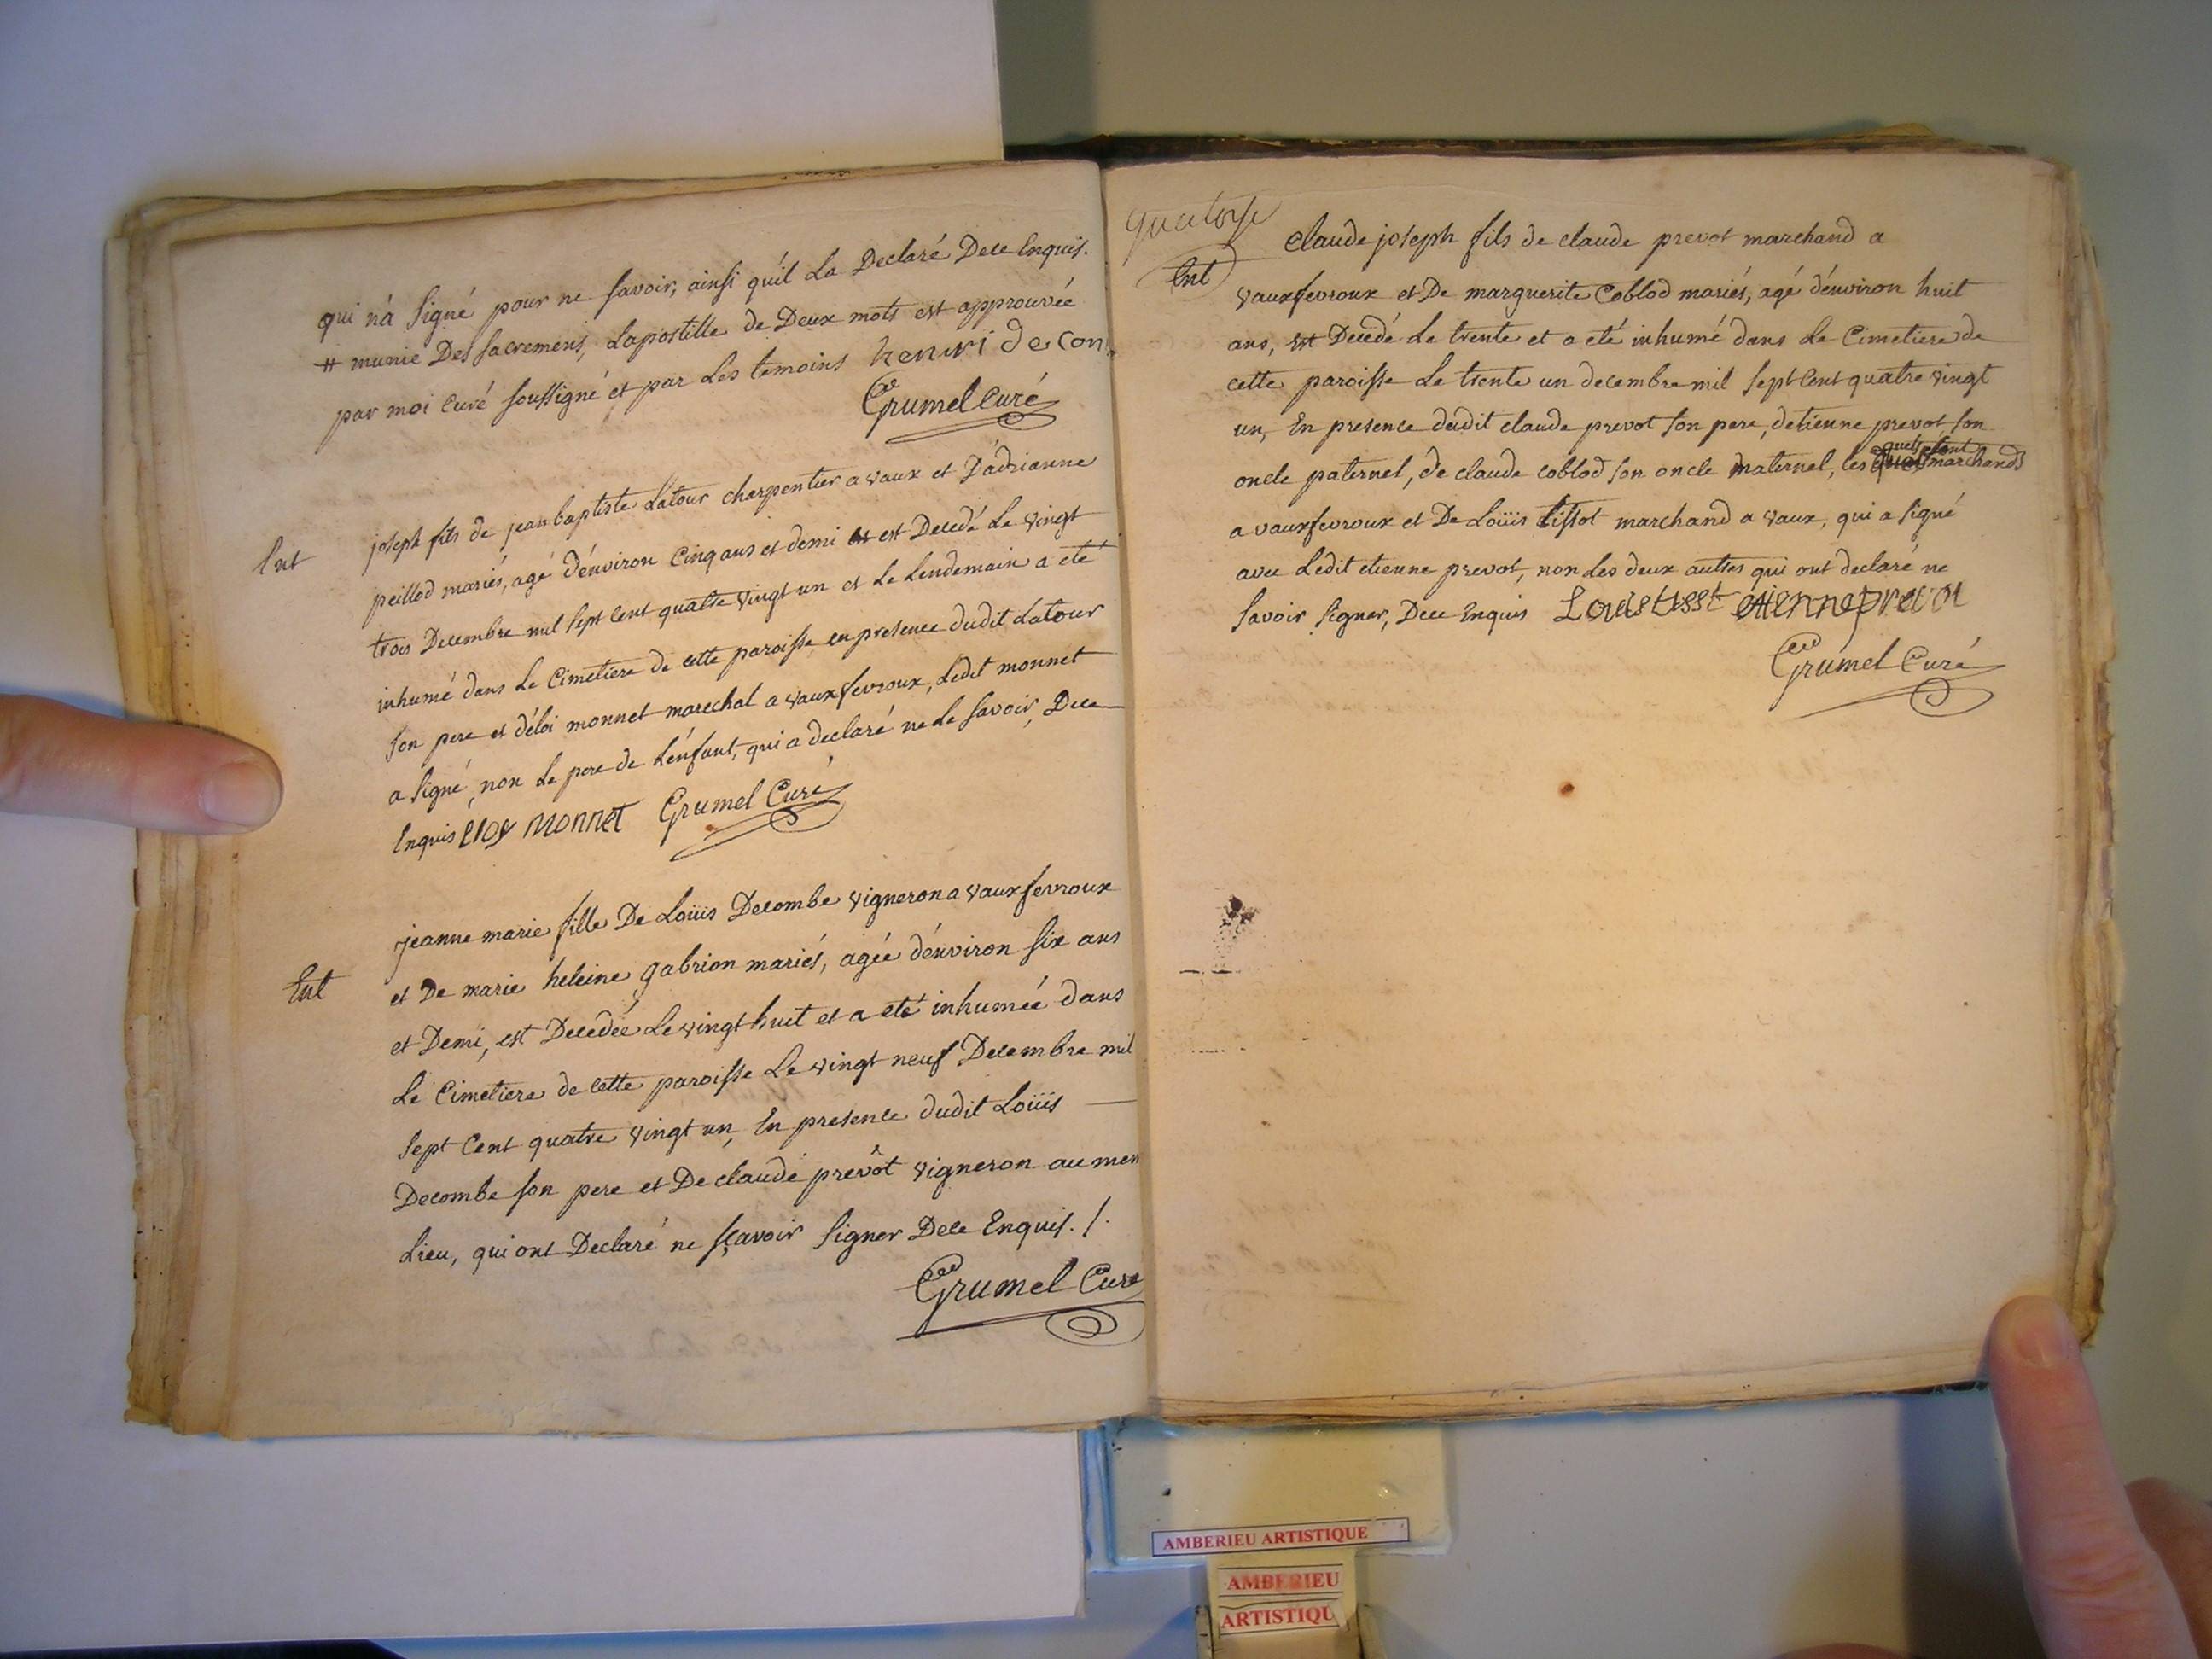 qui n'a signé pour ne savoir, ainsi qu'il la Declaré Dece Enquis.
# munie Des sacremens, Lapostille de Deux mots est approuvée
par moi curé soussigné et par les temoins henri de con
Grumel Curé
Ent
joseph fils de jean baptiste Latour charpentier a vaux et D'adrianne
peillod mariés, agé d'environ cinq ans et demi est Decedé Le vingt
trois Decembre mil sept cent quatre vingt un et Le Lendemain a eté
inhumé dans Le Cimetiere de cette paroisse en presence dudit Latour
son pere et d'éloi monnet marechal a vauxfevroux, Ledit monnet
a signé, non Le pere de L'enfant, qui a declaré ne Le savoir, Dece
Enquis eloy monnet Grumel Curé
Ent
jeanne marie fille De Loüis Decombe vigneron a vauxfevroux
et De marie heleine gabrion mariés, agée d'environ six ans
et Demi, est Decedée Le vingt huit et a eté inhumée dans
Le Cimetiere de cette paroisse Le vingt neuf Decembre mil
sept Cent quatre vingt un, En presence dudit Loüis
Decombe son pere et De claude prevôt vigneron au mem
Lieu, qui ont Declaré ne sçavoir signer Dece Enquis. /.
Grumel Curé
quatorse
Ent
claude joseph fils de claude prevot marchand a
vauxfevroux et De marguerite Coblod mariés, agé d'environ huit
ans, est Decedé Le trente et a eté inhumé dans Le Cimetiere de
cette paroisse Le trente un decembre mil sept Cent quatre vingt
un, En presence dudit claude prevot son pere, d'etienne prevot son
oncle paternel, de claude coblod son oncle maternel, les quels sont marchands
a vauxfevroux et De Loüis tissot marchand a vaux, qui a signé
avec Ledit etienne prevot, non Les deux autres qui ont declaré ne
savoir signer, Dece Enquis Louis tisst etienne prevot
Grumel Curé
AMBERIEU ARTISTIQUE
AMBERIEU
ARTISTIQU